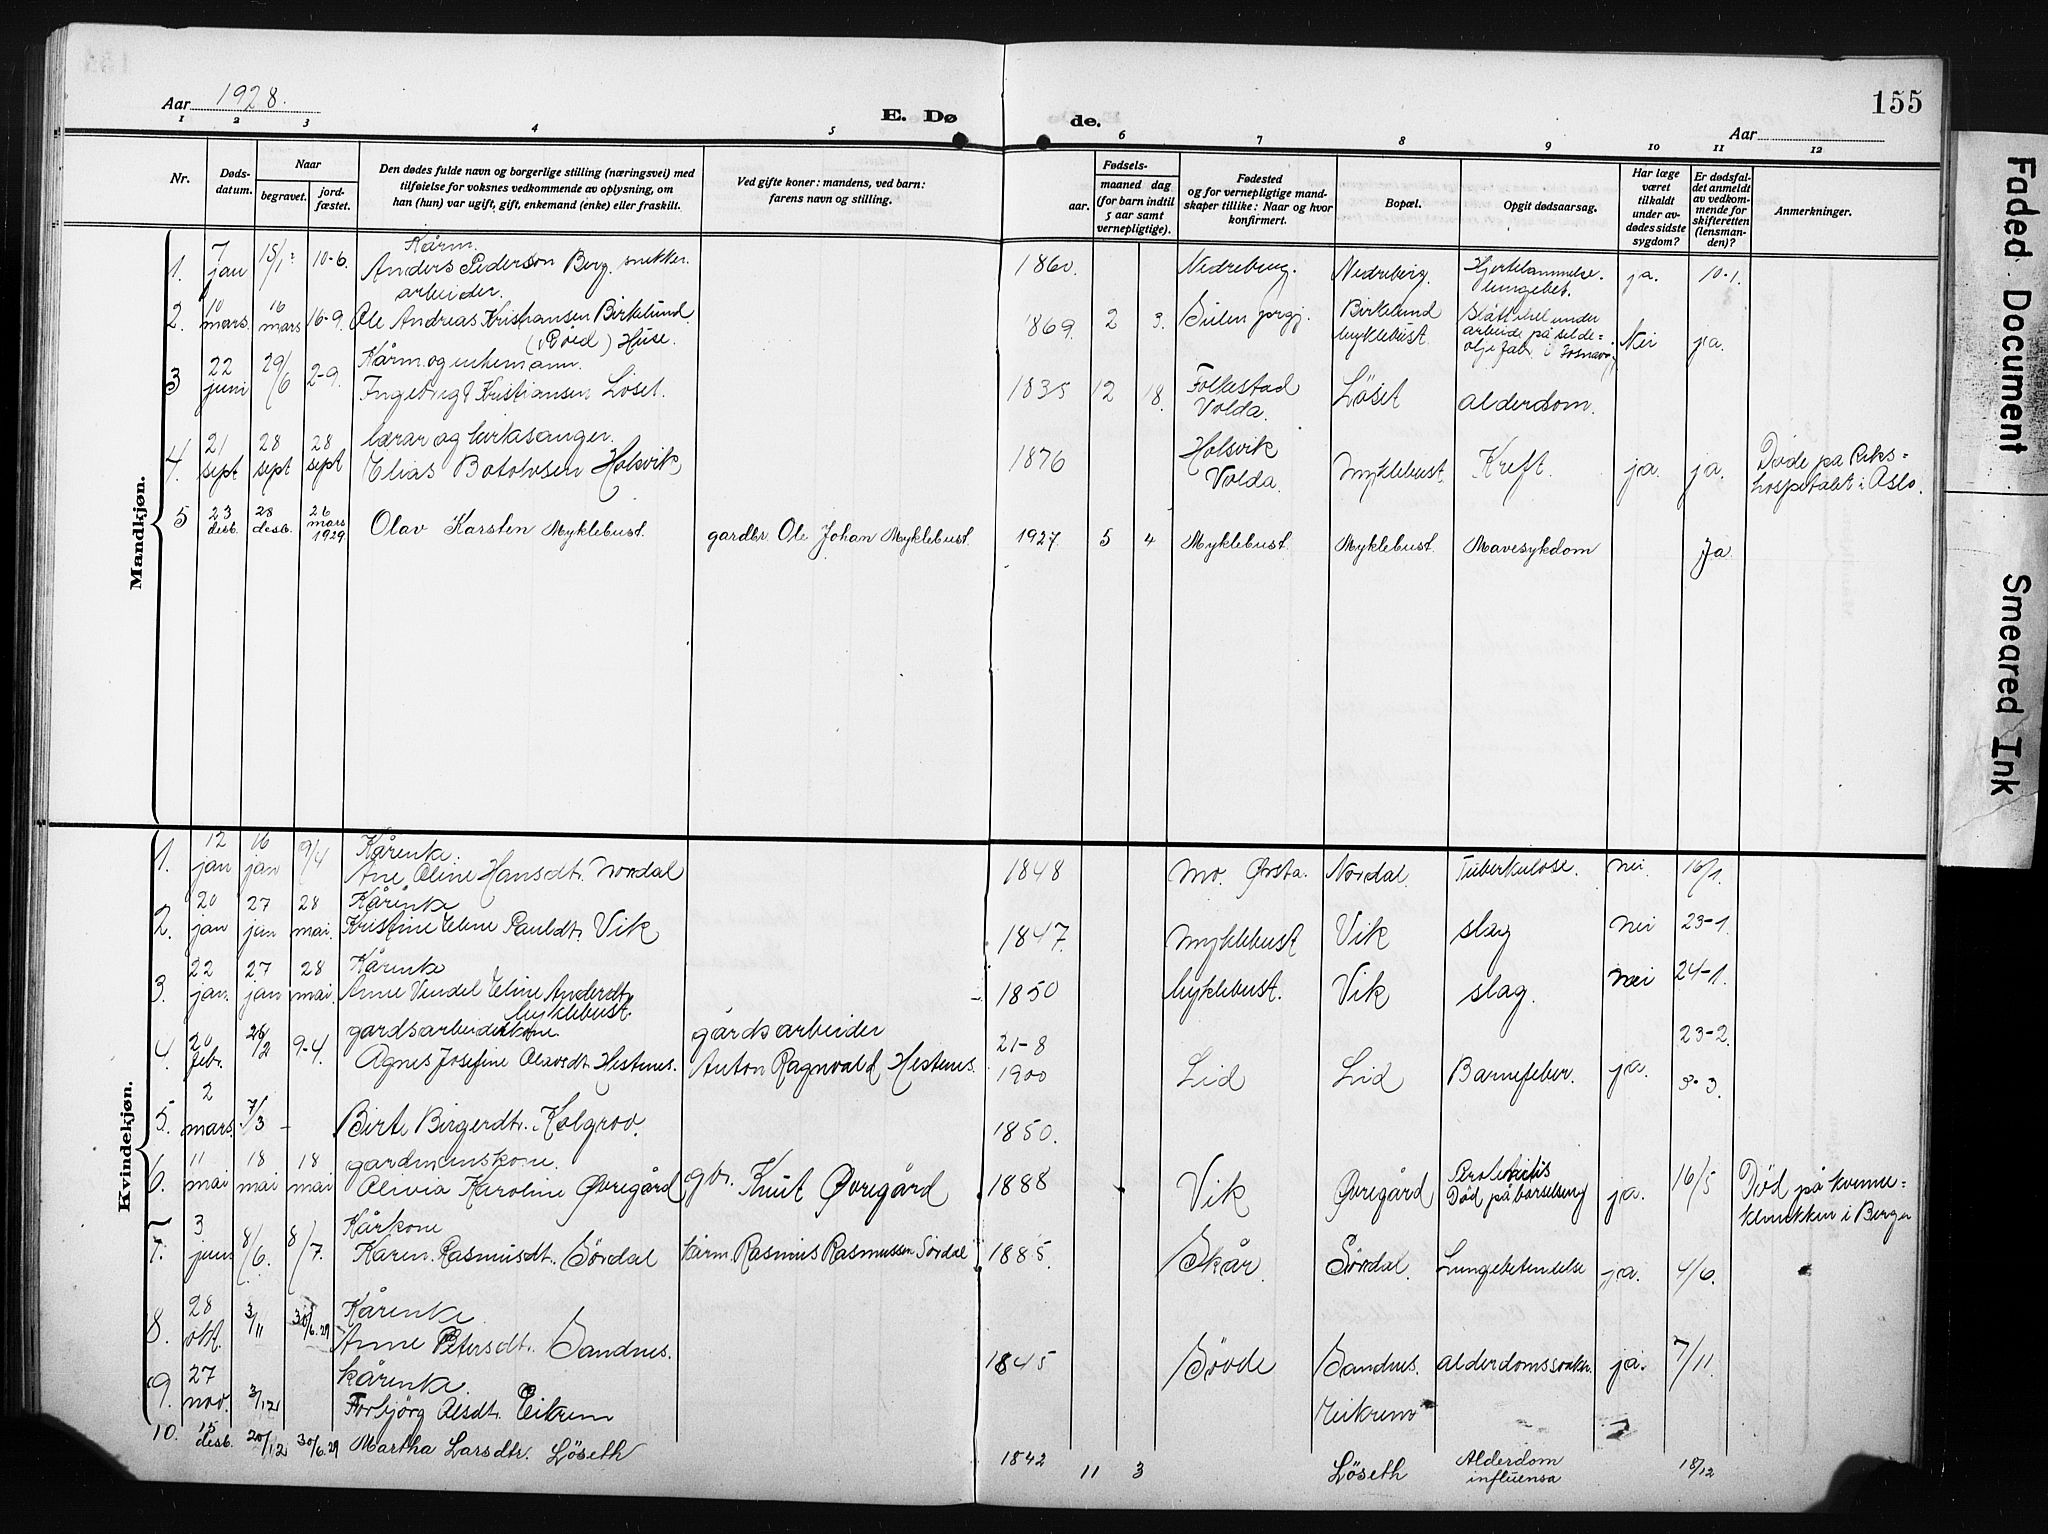 155
Aar 1928.
E. Døde.
Aar
1 2 3 4 5 6 7 8 9 10 11 12
Nr.
Døds-
datum.
Naar
begravet.
jord-
fæstet.
Den dødes fulde navn og borgerlige stilling (næringsvei) med
tilføielse for voksnes vedkommende av oplysning, om
han (hun) var ugift, gift, enkemand (enke) eller fraskilt.
Ved gifte koner: mandens, ved barn:
farens navn og stilling.
Fødsels-
aar.
maaned dag
(for barn indtil
5 aar samt
vernepligtige).
Fødested
og for vernepligtige mand-
skaper tillike: Naar og hvor
konfirmert.
Bopæl.
Opgit dødsaarsag.
Har læge
været
tilkaldt
under av-
dødes sidste
sygdom?
Er dødsfal-
det anmeldt
av vedkom-
mende for
skifteretten
(lensman-
den)?
Anmerkninger.
Mandkjøn.
1. 7 jan 15/1 10-6. Kårm.
Anders Pederson Berg. snekker. 1860. Nedreberg. Nedreberg. Hjertelammelse. lungebet. ja. 10-1.
arbeider.
2. 10 mars. 16 mars 16-9. Ole Andreas Kristiansen Birkelund
Huse. 1869. 2 3. Birkelund Myklebust. Slått ihel under
arbeide på silde=
olje fab. i Fosnavåg Nei ja.
3 22 juni 29/6 2-9. Kårm. og enkemann.
Ingebrigt Kristiansen Löset. 1835 12 18. Folkestad Volda. Løset alderdom.
4. 21 sept 28 sept 28 sept lærar og kirkasanger.
Elias Botolvsen Holsvik 1876 Holsvik Volda. Myklebust. Kreft. ja. ja. Døde på Riks=
hospitalet i Oslo.
5 23 desb. 28 desb. 26 mars 1929 Olav Karsten Myklebust. gardbr. Ole Johan Myklebust. 1927. 5 4 Myklebust. Myklebust. Mavesykdom Ja
Kvindekjøn.
1. 12 jan 16 jan 9/4 Kårenke.
Ane Oline Hansdt. Nordal 1848 Mo. Ørsta. Nordal. Tuberkulose. nei. 16/1.
2. 20 jan 27 jan 28 mai. Kårenke
Kristine Eline Pauldt. Vik 1847. Myklebust Vik slag nei 23-1.
3. 22 jan. 27 jan 28 mai. Kårenke
Anne Vendel Eline Andersdt. Myklebust. 1850 Myklebust. Vik slag. nei 24-1.
4. 20 febr. 26/2 9-4. gardsarbeiderkone
Agnes Josefine Olavsdt. Hestnes. gårdsarbeider
Anton Ragnvald Hestnes. 21-8 1900 Lid Lid Barnefeber. ja. 23-2.
5. 2 mars. 7/3 - Birte Birgerdt. Kolgrov. 1850. 3-3.
6. 11 mai 18 mai 18 mai gardmannskone.
Olivia Karoline Øvregård gbr. Knut Øvregård 1888 Vik Øvregård Død på barselseng ja. 16/5 Død på kvinne=
klinikken i Bergen
7. 3 juni 8/6. 8/7. Kårkone
Karen Rasmusdt. Sördal kårm. Rasmus Rasmussen Sördal 1885. Skår. Sördal. Lungebetendelse ja. 4/6.
8. 28 okt. 3/11 30/6.29 Kårenke
Anne Petersdt. Sandnes. 1845 Sövde Sandnes. alderdomssvakh. ja. 7/11.
9. 27 nov. 3/12 kårenke.
Torbjörg Olsdt. Eikrem Eikrem
10. 15 desb. 20/12 30/6.29 Martha Larsdtr. Löseth 1842 11 3 Löseth Alderdom influensa 18/12
Faded Document Smeared Ink